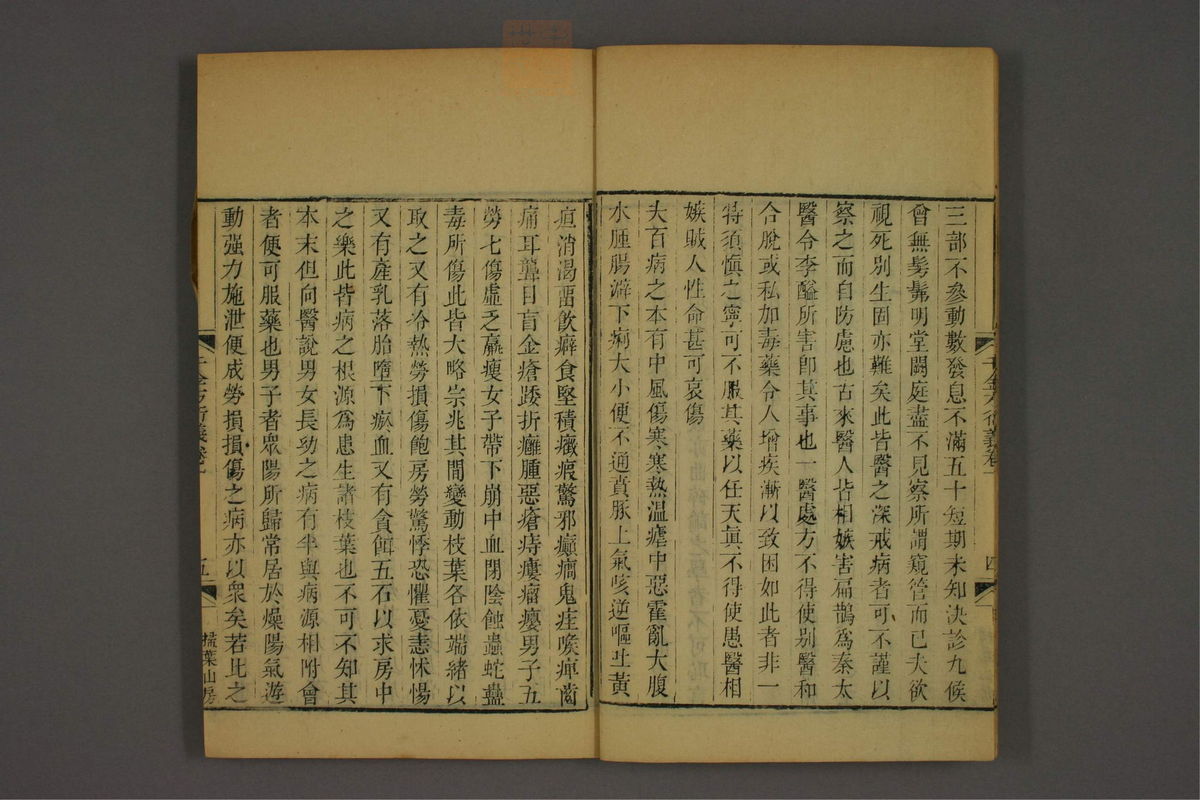 三部不參動數發息不滿五十短期未知決診九候
曾無髣髴明堂闕庭盡不見察所謂窺管而已夫欲
視死別生固亦難矣此皆醫之深戒病者可不謹以
察之而自防慮也古來醫人皆相嫉害扁鵲爲秦太
醫令李醯所害卽其事也一醫處方不得使別醫和
合脫或私加毒藥令人增疾漸以致困如此者非一
特須愼之寧可不服其藥以任天眞不得使愚醫相
嫉賊人性命甚可哀傷
夫百病之本有中風傷寒寒熱温瘧中惡霍亂大腹
水腫腸澼下痢大小便不通賁豚上氣咳逆嘔吐黃
千金方衍義卷一
四
疸消渴畱飲癖食堅積癥瘕驚邪癲癎鬼疰喉痺齒
痛耳聾目盲金瘡踒折癰腫惡瘡痔瘻瘤癭男子五
勞七傷虛乏羸瘦女子帶下崩中血閉陰蝕蟲蛇蠱
毒所傷此皆大略宗兆其閒變動枝葉各依端緒以
取之又有冷熱勞損傷飽房勞驚悸恐懼憂恚怵惕
又有產乳落胎墮下瘀血又有貪餌五石以求房中
之樂此皆病之根源爲患生諸枝葉也不可不知其
本末但向醫說男女長幼之病有半與病源相附會
者便可服藥也男子者眾陽所歸常居於燥陽氣遊
動强力施泄便成勞損損傷之病亦以衆矣若比之
千金方衍義卷一
五
掃葉山房